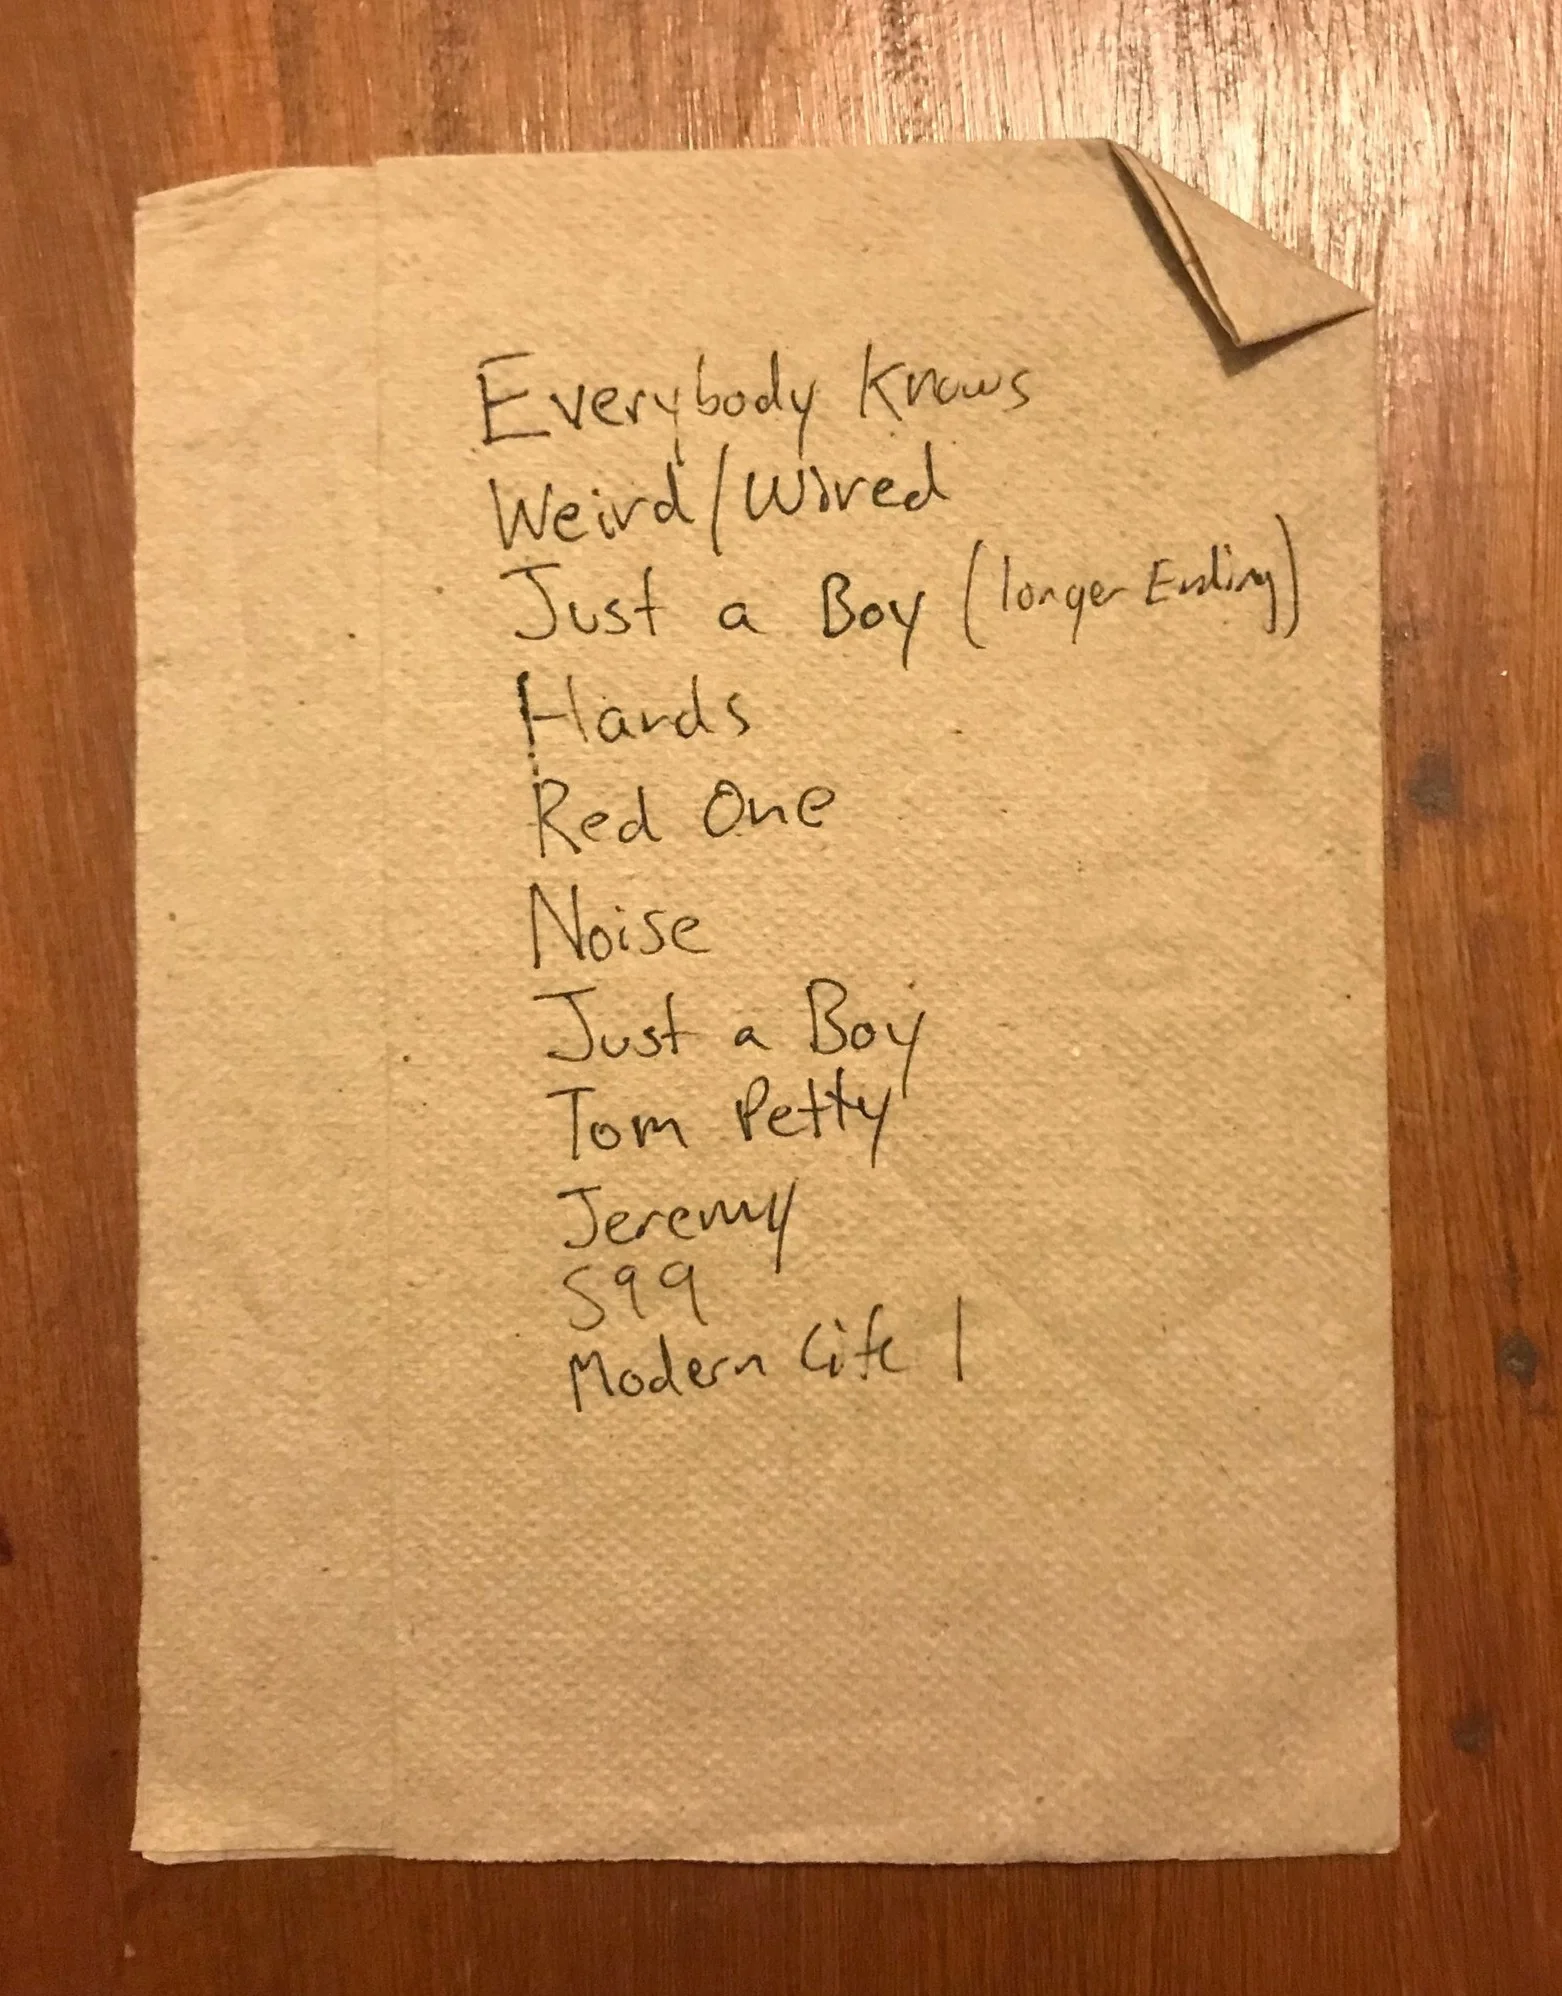 Everybody Knows
Weird/Wired
Just a Boy (longer Ending)
Hands
Red One
Noise
Just a Boy
Tom Petty
Jeremy
S99
Modern Life 1